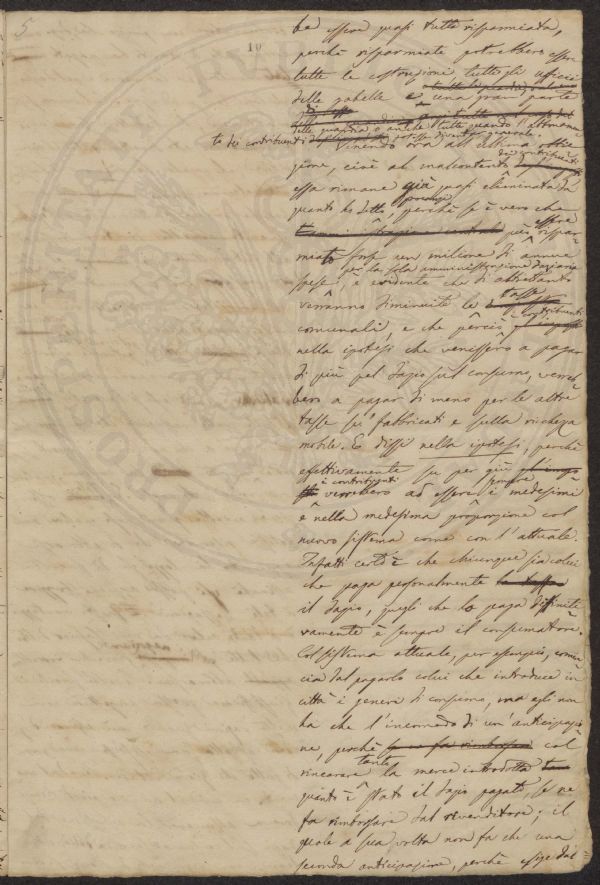 5
10
ba essere quasi tutta risparmiata,
perchè risparmiate potrebbero essere
tutte le costruzioni, tutti gli ufficii
delle gabelle e una gran parte
delle guardie o anche tutte quando l'
potesse diventar generale.
to dei contribuenti
Venendo ora all'ultima obbie
zione, cioè al malcontento dei contribuenti
essa rimane già quasi eliminata da
quanto ho detto, perchè se è vero che
può essere rispar
miato forse un milione di annue
per la sola amministrazione daziaria
spese, è evidente che di altrettanto
verranno diminuite le tasse
comunali, e che perciò i contribuenti
nella ipotesi che venissero a pagar
di più pel dazio sul consumo, verreb
bero a pagar di meno per le altre
tasse su' fabbricati e sulla richezza
mobile. E dissi nella ipotesi, perchè
effettivamente su per giù
i contribuenti sempre
verrebbero ad essere i medesimi
e nella medesima proporzione col
nuovo sistema come con l'attuale.
Infatti certo è che chiunque sia colui
che paga personalmente la tassa
il dazio, quegli che lo paga diffiniti
vamente è sempre il consumatore.
Col sistema attuale, per esempio, comin
cia dal pagarlo colui che introduce in
città i generi di consumo, ma egli non
ha che l'incomodo di un'anticipazio
ne, perchè se ne fa rimborsare col
rincarare tanto la merce introdotta
quanto è stato il dazio pagato, se ne
fa rimborsare dal rivenditore; il
quale a sua volta non fa che una
seconda anticipazione, perchè esige dal